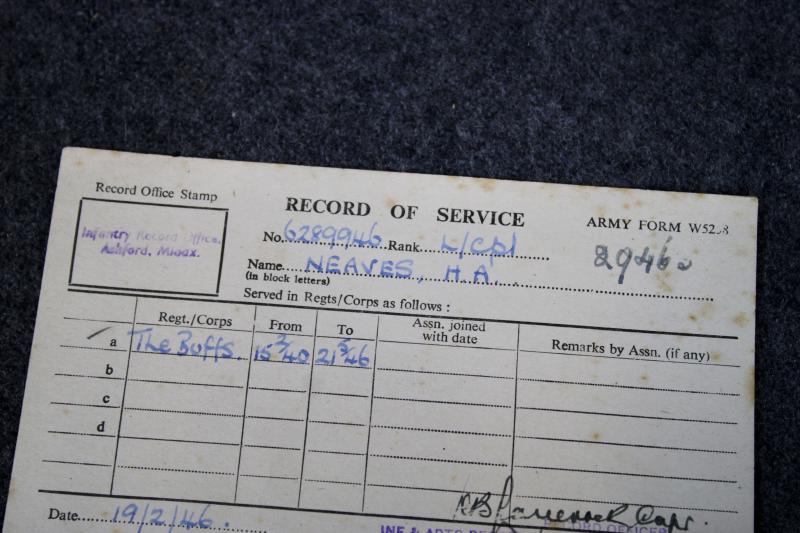 Record Office Stamp
Infantry Record Office,
Ashford, Middx.
RECORD OF SERVICE
ARMY FORM W5258
No. 6289946 Rank L/Cpl
29460
Name NEAVES, H A
(in block letters)
Served in Regts/Corps as follows :
Regt./Corps From To Assn. joined with date Remarks by Assn. (if any)
a The Buffs. 15 2/40 21 5/46
b
c
d
Capt.
Date 19/2/46.
RECORD OFFICER